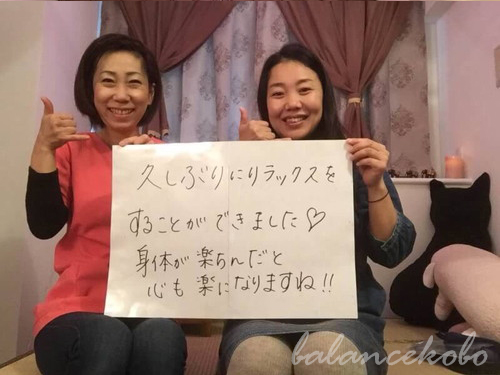 久しぶりにリラックスを
することができました♡
身体が楽らんだと
心も楽になりますね!!
balancekobo